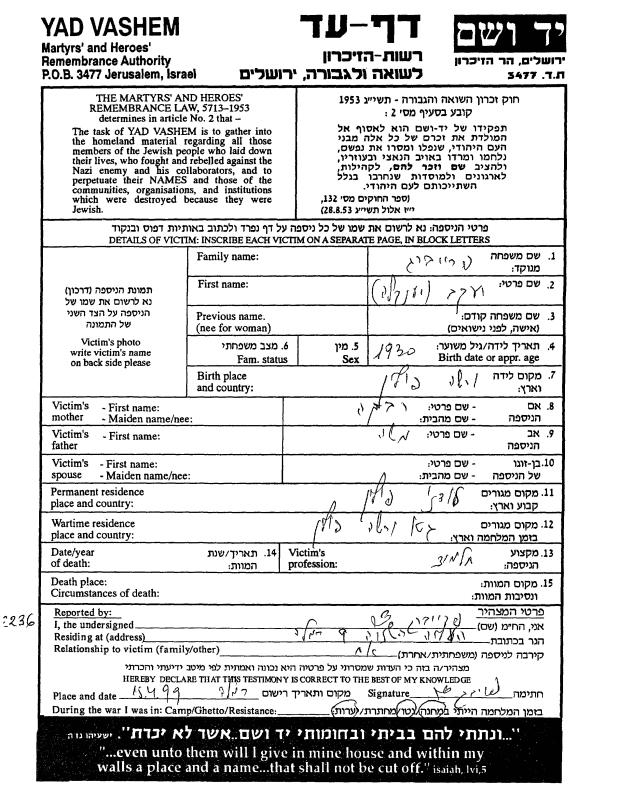 YAD VASHEM
Martyrs' and Heroes'
Remembrance Authority
P.O.B. 3477 Jerusalem, Israel
דף-עד
רשות-הזיכרון
לשואה ולגבורה, ירושלים
יד ושם
ירושלים, הר הזיכרון
ת.ד. 3477
THE MARTYRS' AND HEROES'
REMEMBRANCE LAW, 5713–1953
determines in article No. 2 that –
The task of YAD VASHEM is to gather into
the homeland material regarding all those
members of the Jewish people who laid down
their lives, who fought and rebelled against the
Nazi enemy and his collaborators, and to
perpetuate their NAMES and those of the
communities, organisations, and institutions
which were destroyed because they were
Jewish.
חוק זכרון השואה והגבורה - תשי״ג 1953
קובע בסעיף מס׳ 2:
תפקידו של יד-ושם הוא לאסוף אל
המולדת את זכרם של כל אלה מבני
העם היהודי, שנפלו ומסרו את נפשם,
נלחמו ומרדו באויב הנאצי ובעוזריו,
ולהציב שם וזכר להם, לקהילות,
לארגונים ולמוסדות שנחרבו בגלל
השתייכותם לעם היהודי.
(ספר החוקים מס׳ 132,
י״ז אלול תשי״ג 28.8.53)
פרטי הניספה: נא לרשום את שמו של כל ניספה על דף נפרד ולכתוב באותיות דפוס ובנקוד
DETAILS OF VICTIM: INSCRIBE EACH VICTIM ON A SEPARATE PAGE, IN BLOCK LETTERS
תמונת הניספה (דרכון)
נא לרשום את שמו של
הניספה על הצד השני
של התמונה
Victim's photo
write victim's name
on back side please
Family name: 1. שם משפחה
מנוקד:
First name: יעקב 2. שם פרטי:
Previous name. 3. שם משפחה קודם:
(nee for woman) (אישה, לפני נישואים)
6. מצב משפחתי 5. מין 1930 4. תאריך לידה/גיל משוער:
Fam. status Sex Birth date or appr. age
Birth place ורשה פולין 7. מקום לידה
and country: וארץ:
Victim's - First name: רבקה - שם פרטי: 8. אם
mother - Maiden name/nee: - שם מהבית: הניספה
Victim's - First name: משה - שם פרטי: 9. אב
father הניספה
Victim's - First name: - שם פרטי: 10. בן-זוגו
spouse - Maiden name/nee: - שם מהבית: של הניספה
Permanent residence לודז׳ פולין 11. מקום מגורים
place and country: קבוע וארץ:
Wartime residence גטו ורשה פולין 12. מקום מגורים
place and country: בזמן המלחמה וארץ:
Date/year 14. תאריך/שנת Victim's תלמיד 13. מקצוע
of death: המוות: profession: הניספה:
Death place: 15. מקום המוות:
Circumstances of death: ונסיבות המוות:
Reported by: פרטי המצהיר
I, the undersigned אני, החי״מ (שם)
Residing at (address) הגר בכתובת
Relationship to victim (family/other) אח קירבה לניספה (משפחתית/אחרת)
מצהיר/ה בזה כי העדות שמסרתי על פרטיה היא נכונה ואמתית לפי מיטב ידיעתי והכרתי
HEREBY DECLARE THAT THIS TESTIMONY IS CORRECT TO THE BEST OF MY KNOWLEDGE
Place and date 15.4.99 מקום ותאריך רישום Signature חתימה
During the war I was in: Camp/Ghetto/Resistance: בזמן המלחמה הייתי במחנה/גטו/מחתרת/יערות
236
"...ונתתי להם בביתי ובחומותי יד ושם...אשר לא יכרת". ישעיהו נו ה
"...even unto them will I give in mine house and within my
walls a place and a name...that shall not be cut off." isaiah, lvi,5